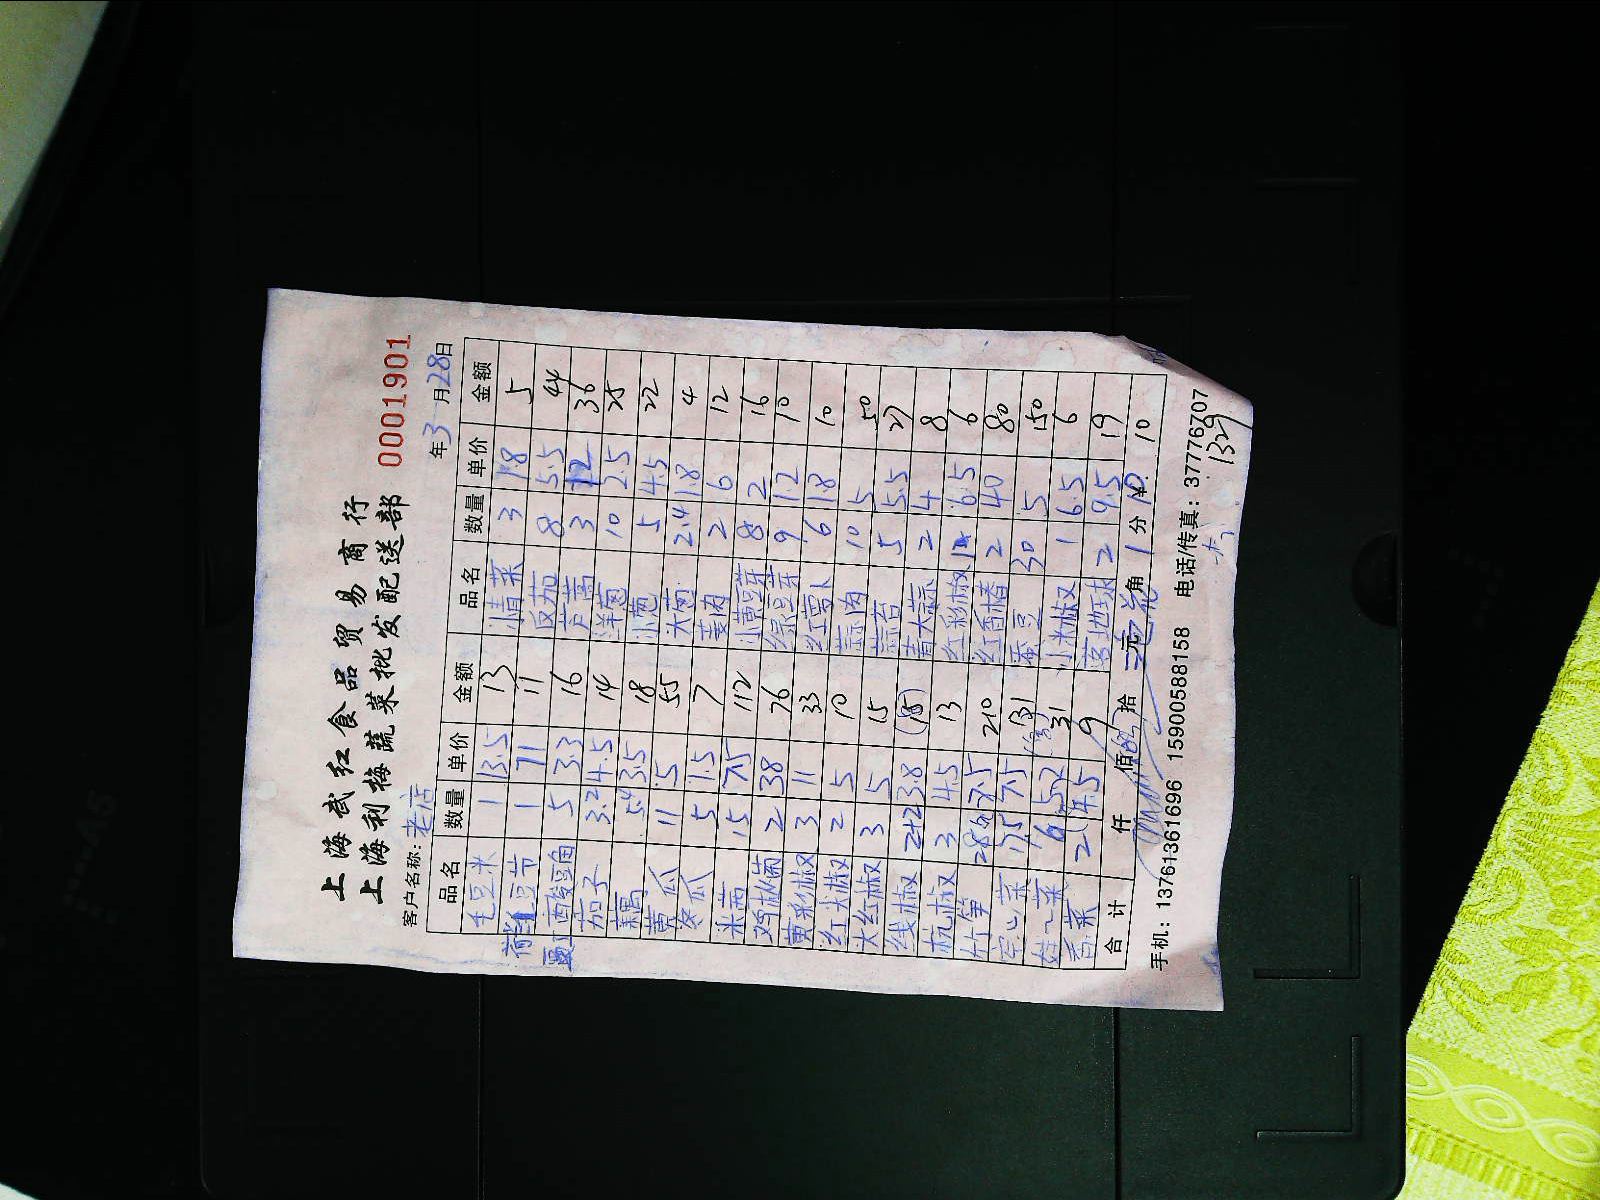 上海斌红食品贸易商行
上海利梅蔬菜批发配送部
00019​01
客户名称: 老店 年3月28日
品名 数量 单价 金额 品名 数量 单价 金额
毛豆米 1 13.5 13 小青菜 3 1.8 5
豆节 1 11 11 凤茄 8 5.5 44
酸豆角 5 3.3 16 芦蒿 3 12 36
茄子 3.2 4.5 14 洋葱 10 2.5 25
藕 5.4 3.5 18 小葱 5 4.5 22
黄瓜 11 5 55 大葱 2.4 1.8 4
冬瓜 5 1.5 7 姜肉 2 6 12
米苋 15 7.5 112 小黄豆芽 8 2 16
鸡枞菌 2 38 76 绿豆芽 9 1.2 10
黄彩椒 3 11 33 红雪卜 6 1.8 10
红尖椒 2 5 10 蒜肉 10 5 50
大红椒 3 5 15 蒜苔 5 5.5 27
线椒 2+2 3.8 (15) 青大蒜 2 4 8
杭椒 3 4.5 13 红彩椒 1 6.5 6
竹笋 28 7.5 210 红香椿 2 40 80
空心菜 17.5 7.5 131 蚕豆 30 5 150
娃娃菜 6 5.2 31 小米椒 1 6.5 6
香菜 2 4.5 9 2 9.5 19
合计 仟 佰 拾 元 角 分 ¥: 10
手机: 13761361696 15900588158 电话/传真: 37776707
1329